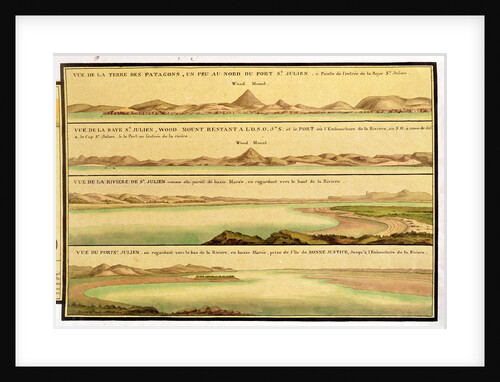 VUE DE LA TERRE DES PATAGONS, UN PEU AU NORD DU PORT St. JULIEN. a Pointe de l'entrée de la Baye St. Julien.
Wood Mount.
VUE DE LA BAYE St. JULIEN, WOOD MOUNT RESTANT A L.O.S.O. et le PORT où l'Embouchure de la Riviere, au S.O.
a, le Cap St. Julien. b le Port ou l'entrée de la riviere.
Wood Mount.
VUE DE LA RIVIERE DE St. JULIEN comme elle paroit de basse Marée, en regardant vers le haut de la Riviere.
VUE DU PORT St. JULIEN, en regardant vers le bas de la Riviere, en basse Marée, prise de l'Ile de BONNE JUSTICE, Jusqu'à l'Embouchure de la Riviere.